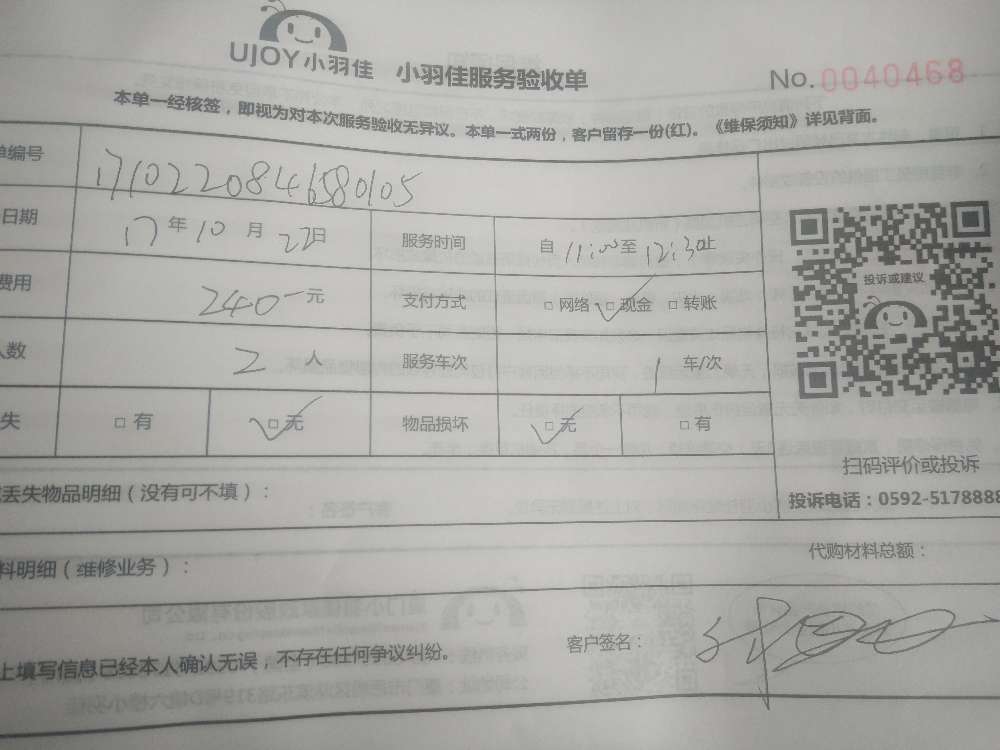 UJOY小羽佳 小羽佳服务验收单 No. 0040468
本单一经核签，即视为对本次服务验收无异议。本单一式两份，客户留存一份(红)。《维保须知》详见背面。
单编号 1710220846580105
日期 17 年 10 月 22 日 服务时间 自 11:00 至 12:30 止
费用 240 元 支付方式 □ 网络 □ 现金 □ 转账
人数 2 人 服务车次 1 车/次
失 □ 有 □ 无 物品损坏 □ 无 □ 有
投诉或建议
扫码评价或投诉
投诉电话：0592-5178888
丢失物品明细（没有可不填）：
代购材料总额：
料明细（维修业务）：
客户签名：
上填写信息已经本人确认无误，不存在任何争议纠纷。